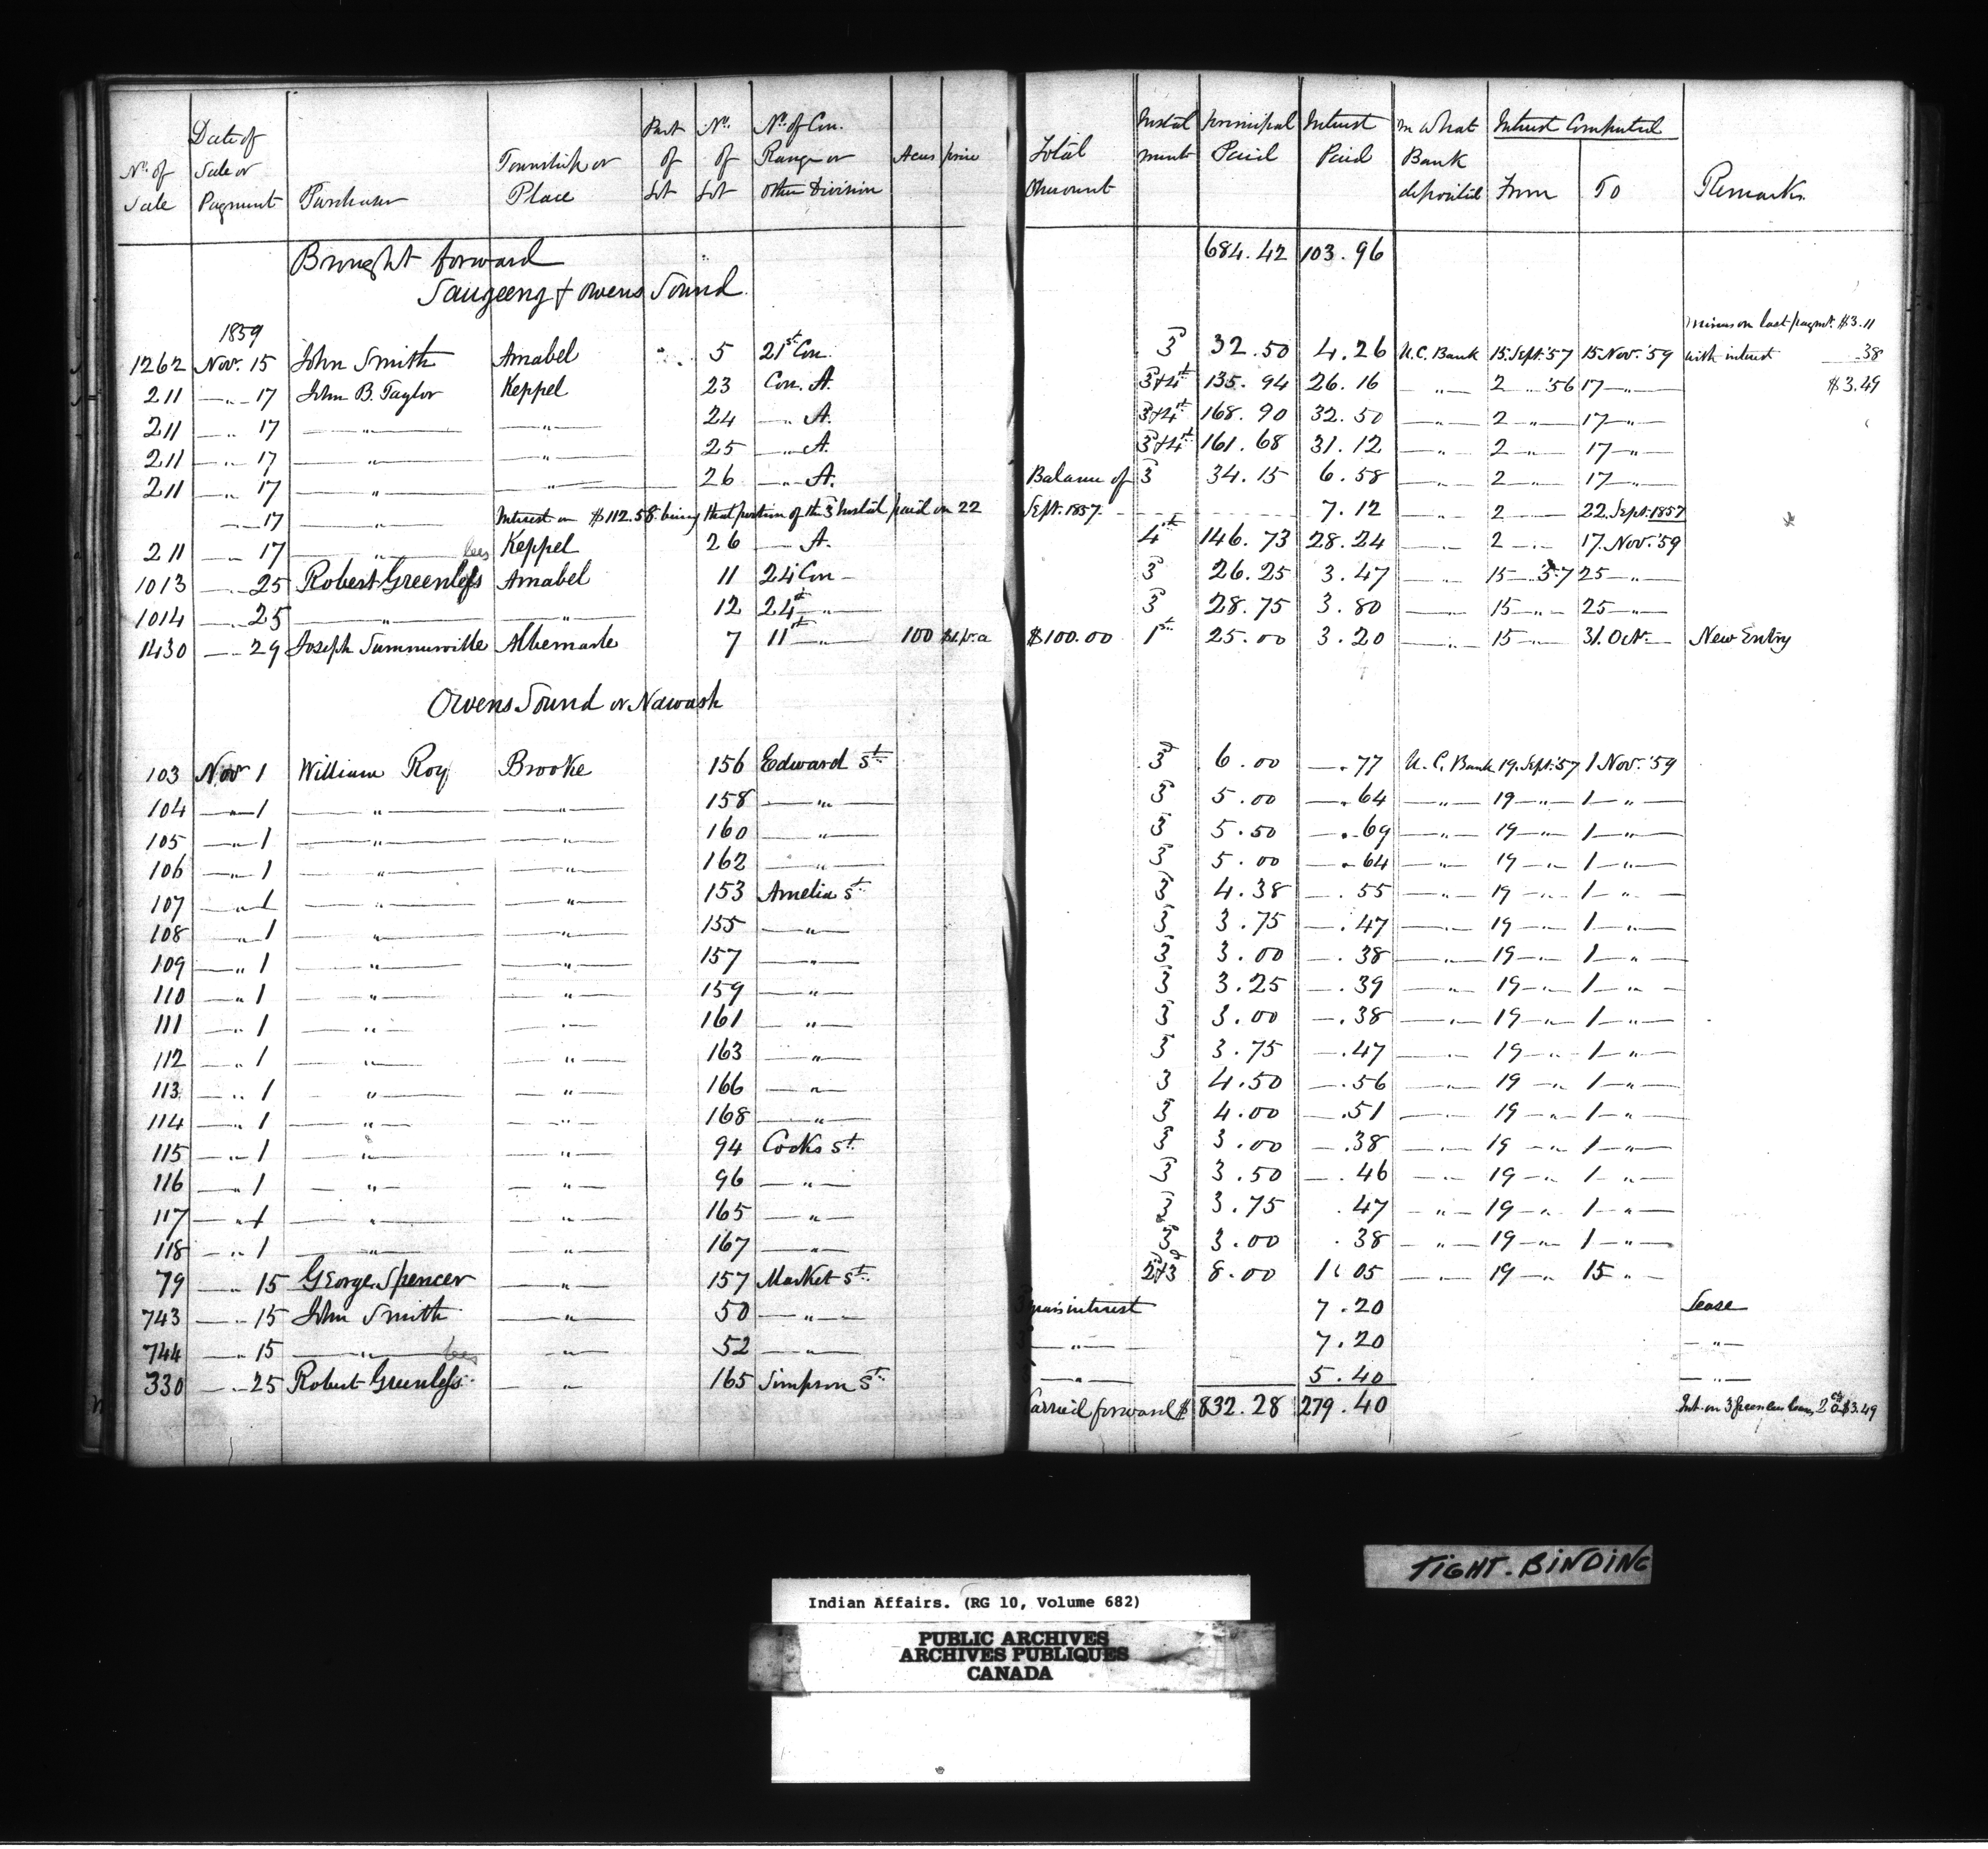 No. of Sale | Date of Sale or Payment | Purchaser | Township or Place | Part of Lot | No. of Lot | No. of Con. Range or other Division | Acres | price | Total Amount | Instalment | Principal Paid | Interest Paid | In what Bank deposited | Interest Computed From | To | Remarks
Brought forward 684.42 103.96
Saugeeng & Owens Sound
1859 minus on last paymt. $3.11
1262 Nov. 15 John Smith Amabel 5 21st Con. 3 32.50 4.26 U.C. Bank 15. Sept. '57 15 Nov. '59 with interest .38
211 — „ — 17 John B. Taylor Keppel 23 Con. A. 3+4th 135.94 26.16 — „ — 2 — „ '56 17 — „ — $3.49
211 — „ 17 — „ — — „ — 24 — „ A. 3+4th 168.90 32.50 — „ — 2 — „ — 17 — „ —
211 — „ 17 — „ — — „ — 25 — „ A. 3+4th 161.68 31.12 — „ — 2 — „ — 17 — „ —
211 — „ 17 — „ — — „ — 26 — „ A. Balance of 3 34.15 6.58 — „ — 2 — „ — 17 — „ —
— „ 17 — „ — Interest on $112.58 being that portion of the 3 Instal. paid on 22 Sept. 1857. 7.12 — „ — 2 — — 22. Sept. 1857
211 — „ 17 — „ — Keppel 26 — A. 4th 146.73 28.24 — „ — 2 — „ — 17. Nov. '59
lees
1013 — „ 25 Robert Greenlefs Amabel 11 24 Con — 3 26.25 3.47 — „ — 15 — 57 25 — „ —
1014 — „ 25 — „ — — „ — 12 24th — „ — 3 28.75 3.80 — „ — 15 — „ — 25 — „ —
1430 — „ 29 Joseph Summerville Albemarle 7 11th — „ — 100 $1 p. a $100.00 1st 25.00 3.20 — „ — 15 — „ — 31. Oct. — New Entry
Owens Sound or Nawash
103 Nov 1 William Roy Brooke 156 Edward St. 3d 6.00 — .77 U.C. Bank 19. Sept. '57 1 Nov. '59
104 — „ 1 — „ — — „ — 158 — „ — 3 5.00 — .64 — „ — 19 — „ — 1 — „ —
105 — „ 1 — „ — — „ — 160 — „ — 3 5.50 — .69 — „ — 19 — „ — 1 — „ —
106 — „ 1 — „ — — „ — 162 — „ — 3 5.00 — .64 — „ — 19 — „ 1 — „ —
107 — „ 1 — „ — — „ — 153 Amelia St. 3 4.38 — .55 — „ — 19 — „ — 1 — „ —
108 — „ 1 — „ — — „ — 155 — „ — 3 3.75 — .47 — „ — 19 — „ — 1 — „ —
109 — „ 1 — „ — — „ — 157 — „ — 3 3.00 — .38 — „ — 19 — „ 1 — „ —
110 — „ 1 — „ — — „ — 159 — „ — 3 3.25 — .39 — „ — 19 — „ 1 — „ —
111 — „ 1 — „ — — „ — 161 — „ — 3 3.00 — .38 — „ — 19 — „ 1 — „ —
112 — „ 1 — „ — — „ — 163 — „ — 3 3.75 — .47 — „ — 19 — „ — 1 — „ —
113 — „ 1 — „ — — „ — 166 — „ — 3 4.50 — .56 — „ — 19 — „ 1 — „ —
114 — „ 1 — „ — — „ — 168 — „ — 3 4.00 — .51 — „ — 19 — „ — 1 — „ —
115 — „ 1 — „ — — „ — 94 Cooks St. 3 3.00 — .38 — „ — 19 — „ — 1 — „ —
116 — „ 1 — „ — — „ — 96 — „ — 3 3.50 — .46 — „ — 19 — „ 1 — „ —
117 — „ 1 — „ — — „ — 165 — „ — 3 3.75 .47 — „ — 19 — „ 1 — „ —
118 — „ 1 — „ — — „ — 167 — „ — 3d 3.00 .38 — „ — 19 — „ 1 — „ —
79 — „ 15 George Spencer — „ — 157 Market St. 2+3d 8.00 1.05 — „ — 19 — „ 15 „ —
743 — „ 15 John Smith — „ — 50 — „ — interest 7.20 Lease
744 — „ 15 — „ — — „ — 52 — „ — — „ — 7.20 — „ —
lees
330 — „ 25 Robert Greenlefs — „ 165 Simpson St. — „ — 5.40 — „ —
Carried forward $ 832.28 279.40 Int. on 3
TIGHT. BINDING
Indian Affairs. (RG 10, Volume 682)
PUBLIC ARCHIVES
ARCHIVES PUBLIQUES
CANADA